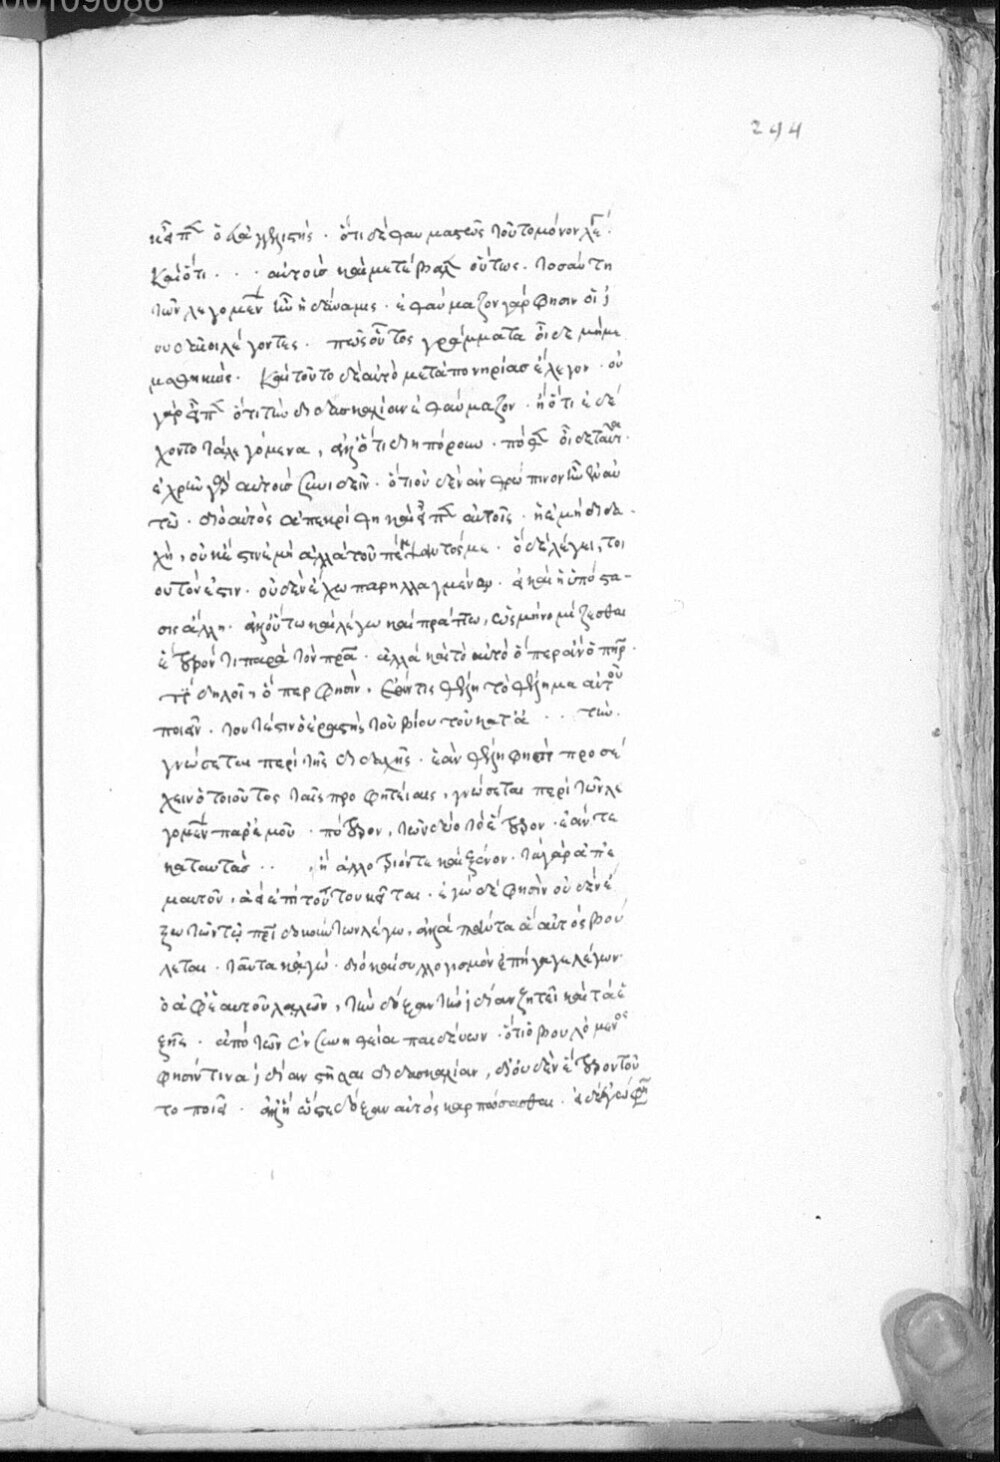 00109086
244
ὁ εὐαγγελιστής · ὅτι δὲ θαυμαστῶς τοῦτο μόνον
καὶ ὅτι · · · αὐτοὺς καὶ μετέβαλ οὕτως · τοσαύτη
τῶν λεγομέν ἦν ἡ δύναμις · ἐθαύμαζον γάρ φησιν οἱ ἰ
ουδαῖοι λέγοντες · πῶς οὗτος γράμματα οἶδε μὴ με
μαθηκώς · καὶ τοῦτο δὲ αὐτὸ μετὰ πονηρίας ἔλεγον · οὐ
γὰρ εἶπ ὅτι τὴν διδασκαλίαν ἐθαύμαζον · ἢ ὅτι ἐδέ
χοντο τὰ λεγόμενα, ἀλλ' ὅτι διηπόρουν · πόθ οἶδε ταῦτα ·
ἐχρῆν αὐτοὺς συνιδεῖν · ὅτι οὐδὲν ἀνθρώπινον ἦν ἐν αὐ
τῷ · διὸ αὐτὸς ἀπεκρίθη καὶ εἶπ αὐτοῖς · ἡ ἐμὴ διδα
χὴ, οὐκ ἔστιν ἐμὴ ἀλλὰ τοῦ πέμψαντός με · ὃ δὲ λέγει, τοι
οῦτόν ἐστιν · οὐδὲν ἔχω παρηλλαγμένον · καὶ ἡ ὑπόστα
σις ἄλλη · ἀλλ' οὕτω καὶ λέγω καὶ πράττω, ὡς μὴ νομίζεσθαι
ἕτερόν τι παρὰ τὸν πρα · ἀλλὰ καὶ τὸ αὐτὸ ὅπερ ἂν ὁ πηρ ·
δηλοῖ, ὅ περ φησὶν · ἐάν τις θέλῃ τὸ θέλημα αὐτοῦ
ποιεῖν · τουτέστιν ὁ ἐραστὴς τοῦ βίου τοῦ κατ' ἀ · · τὴν ·
γνώσεται περὶ τῆς διδαχῆς · ἐὰν θέλῃ φησὶ προσέ
χειν ὁ τοιοῦτος ταῖς προφητείαις, γνώσεται περὶ τῶν λε
γομέν παρ' ἐμοῦ · πότερον, τῶν δύο τὸ ἕτερον · ἐάν τε
κατ' αὐτὰς · · , ἢ ἀλλότριόν τε καὶ ξένον · τὸ γὰρ ἀπ' ἐ
μαυτοῦ, ἀντὶ τούτου κεῖται · ἐγὼ δέ φησιν οὐ ξένε
ξω τῶν τῷ πρὶ δοκούντων λέγω, ἀλλὰ πάντα ἃ αὐτὸς βού
λεται · ταῦτα κἀγώ · διὸ καὶ συλλογισμὸν ἐπήγαγε λέγων ·
ὁ ἀφ' ἑαυτοῦ λαλῶν, τὴν δόξαν τὴν ἰδίαν ζητεῖ καὶ τὰ ἑ
ξῆς · ἀπὸ τῶν ἐν συνηθείᾳ παιδεύων · ὅτι ὁ βουλόμενος
φησίν τινα ἰδίαν στῆσαι διδασκαλίαν, δι' οὐδὲν ἕτερον τοῦ
το ποιεῖ · ἀλλ' ἢ ὥστε δόξαν αὐτὸς καρπώσασθαι · εἰ δὲ ἐγὼ φη